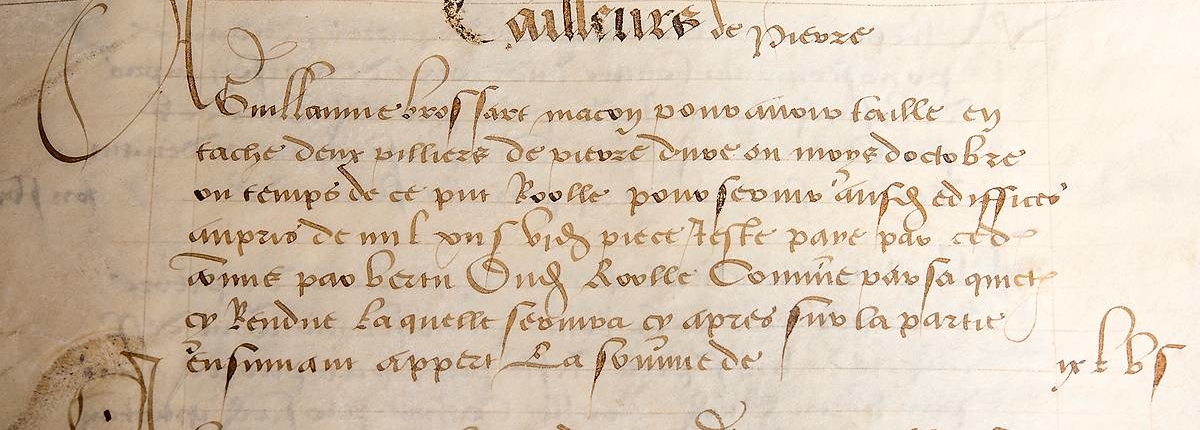 Tailleurs de pierre
A
Guillaume brossart macon pour avoir taille en
tache deux pilliers de pierre dure ou moys doctobre
ou temps de ce pnt Roolle pour servir ausd ediffices
au pris de piece paye par ced
comme par vertu dud Roolle Comme par sa quict
cy Rendue La quelle servira cy apres sur la partie
ensuivant appert La somme de ix l v s